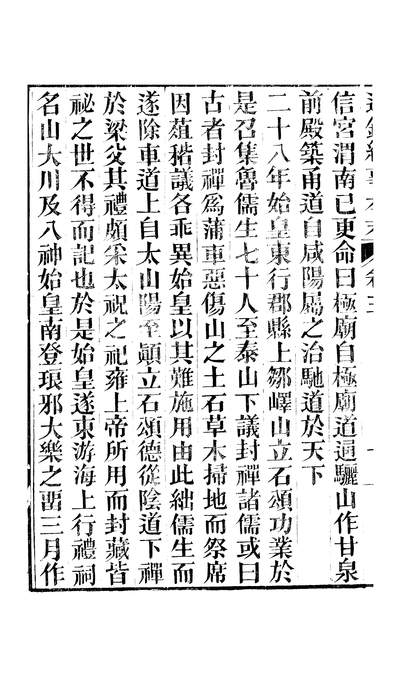 信宮渭南已更命曰極廟自極廟道通驪山作甘泉
前殿築甬道自咸陽屬之治馳道於天下
二十八年始皇東行郡縣上鄒嶧山立石頌功業於
是召集魯儒生七十人至泰山下議封禪諸儒或曰
古者封禪爲蒲車惡傷山之土石草木掃地而祭席
因葅稭議各乖異始皇以其難施用由此絀儒生而
遂除車道上自太山陽至顚立石頌德從陰道下禪
於梁父其禮頗采太祝之祀雍上帝所用而封藏皆
祕之世不得而記也於是始皇遂東游海上行禮祠
名山大川及八神始皇南登琅邪大樂之畱三月作